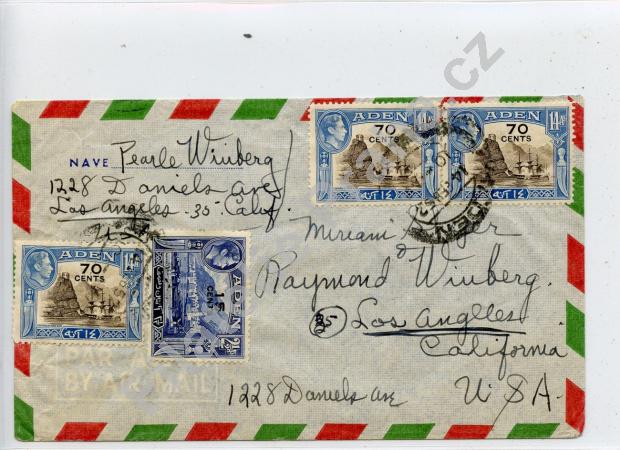 NAVE Pearle Winberg
1228 Daniels ave
Los Angeles. 35. Calif.
ADEN
70
CENTS
14A
ADEN
70
CENTS
14A
ADEN
70
CENTS
ADEN
15
CENTS
2½
ADEN
Miriam
Raymond Winberg.
35
Los Anglles
California
U S A.
1228 Daniels ave
BY AIR MAIL
cz